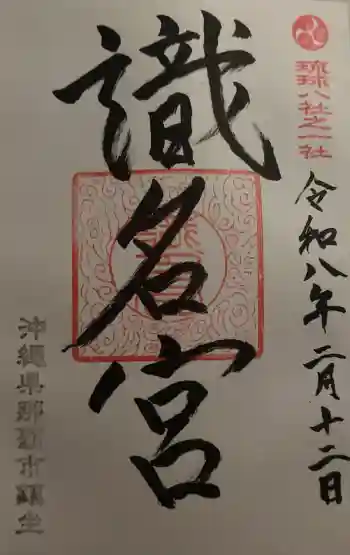 琉球八社之一社
令和八年二月十二日
識名宮
沖縄県那覇市鎮坐